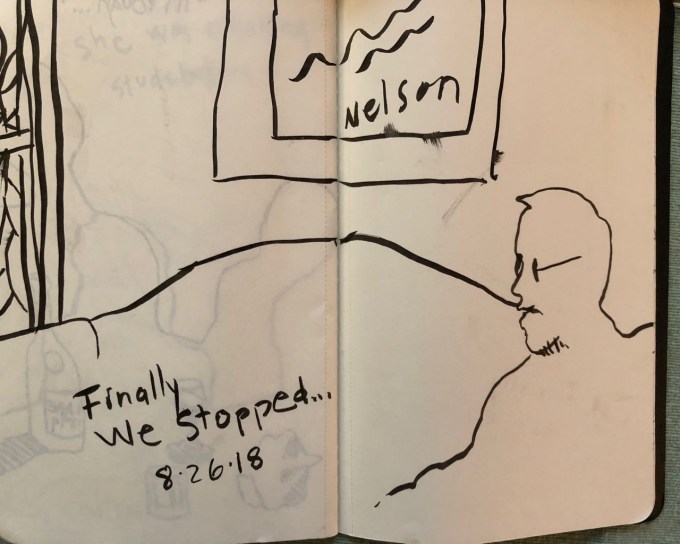 she was
Nelson
Finally
We stopped...
8.26.18